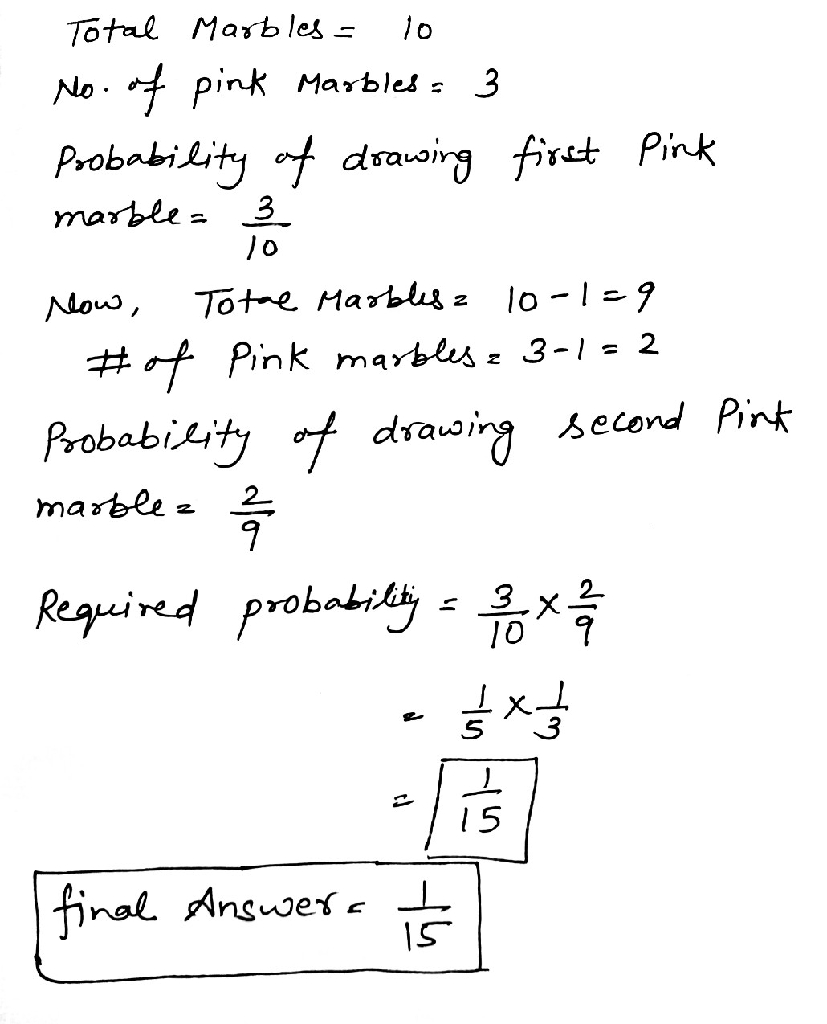 Total Marbles = 10
No. of pink Marbles = 3
Probability of drawing first Pink
marble = 3/10
Now, Total Marbles = 10 - 1 = 9
# of Pink marbles = 3 - 1 = 2
Probability of drawing second Pink
marble = 2/9
Required probability = 3/10 × 2/9
= 1/5 × 1/3
= 1/15
final Answer = 1/15